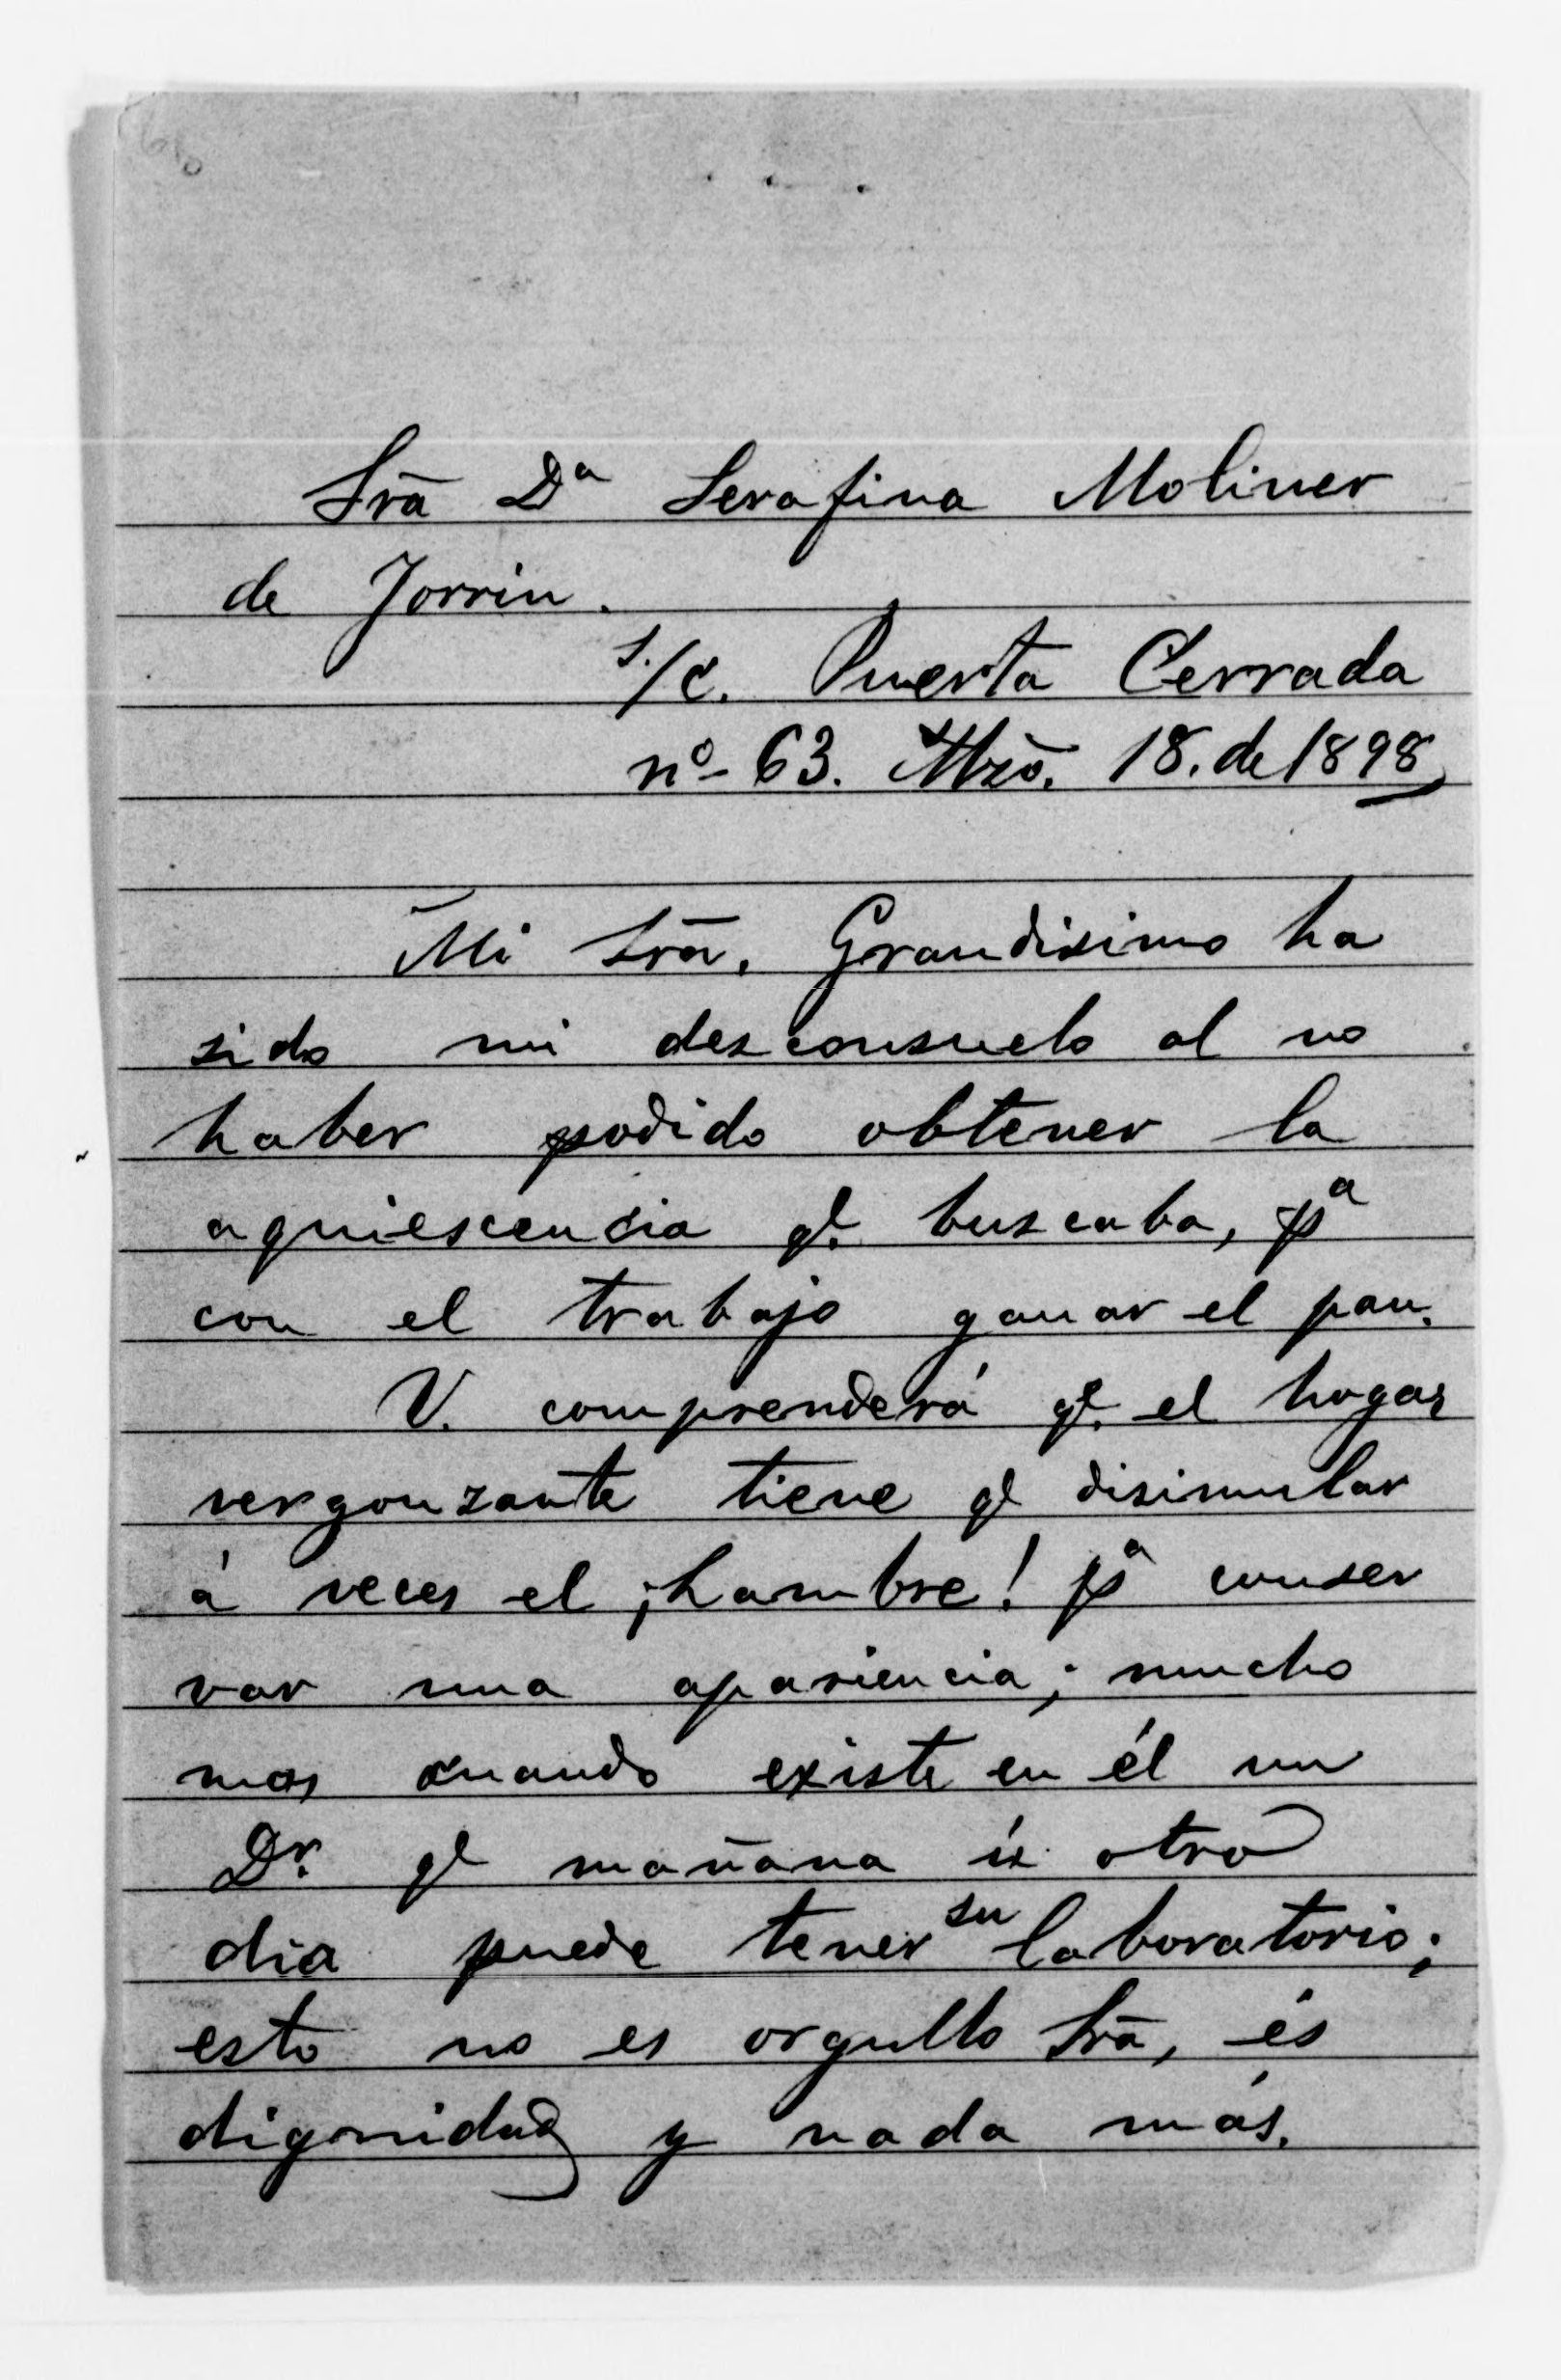 Srã Dª Serafina Moliner
de Jorrin.
s./c. Puerta Cerrada
nº 63. Mzõ. 18. de 1898
Mi Srã. Grandisimo ha
sido mi desconsuelo al no
haber podido obtener la
aquiescencia qe. buscaba, pª
con el trabajo ganar el pan.
V. comprenderá qe. el hogar
vergonzante tiene qe disimular
á veces el ¡hambre! pª conser
var una apariencia; mucho
mas cuando existe en él un
Dr. qe mañana ú otro
dia puede tener su laboratorio;
esto no es orgullo Srã, és
dignidad y nada más.